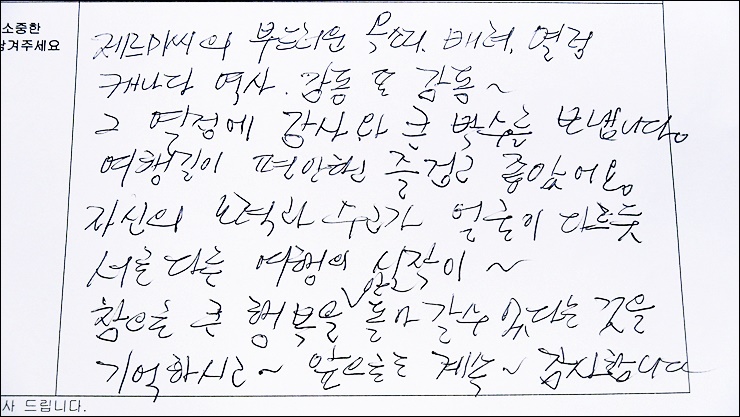 소중한
남겨주세요
제르미씨의 부드러운 목소리, 배려, 열정
캐나다 역사. 감동 또 감동~
그 열정에 감사와 큰 박수를 보냅니다.
여행길이 편안한 즐겁고 좋았어요.
자신의 노력과 수고가 얼굴이 다르듯
서로 다른 여행의 시작이~
참으로 큰 행복을 안고 돌아갈수 있다는 것을
기억하시고~ 앞으로도 계속~ 감사합니다
사 드립니다.